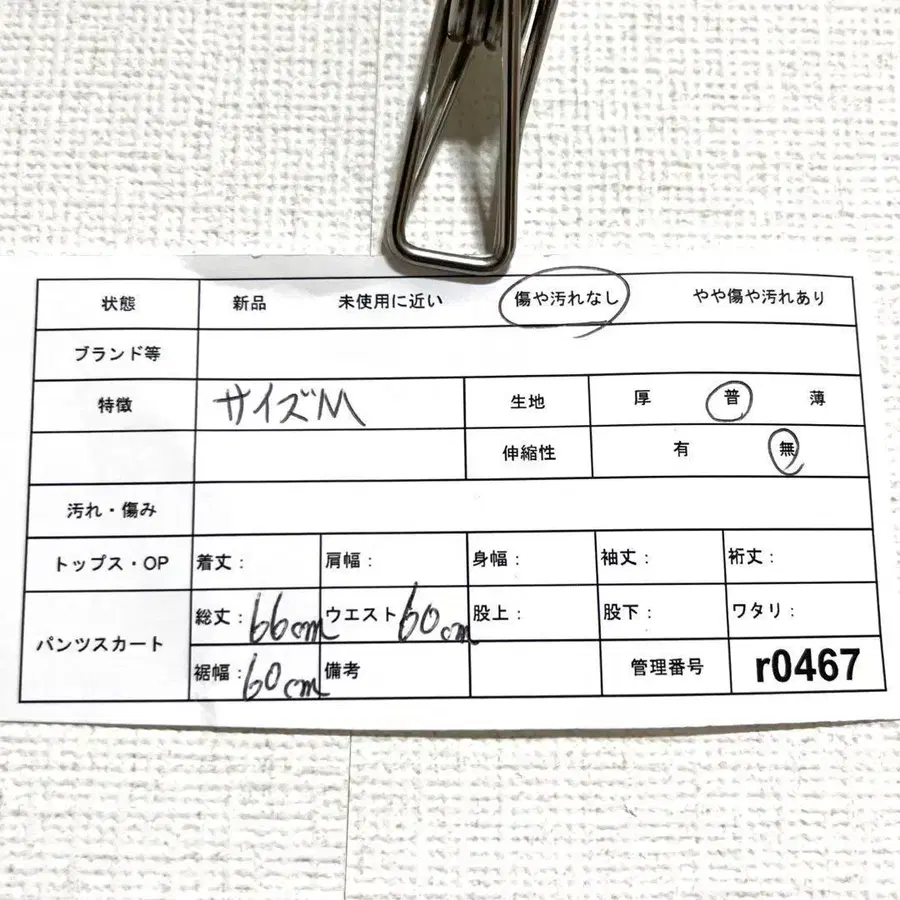 状態 新品 未使用に近い 傷や汚れなし やや傷や汚れあり
ブランド等
特徴 サイズM 生地 厚 普 薄
伸縮性 有 無
汚れ・傷み
トップス・OP 着丈： 肩幅： 身幅： 袖丈： 裄丈：
パンツスカート 総丈：66cm ウエスト：60cm 股上： 股下： ワタリ：
裾幅：60cm 備考 管理番号 r0467